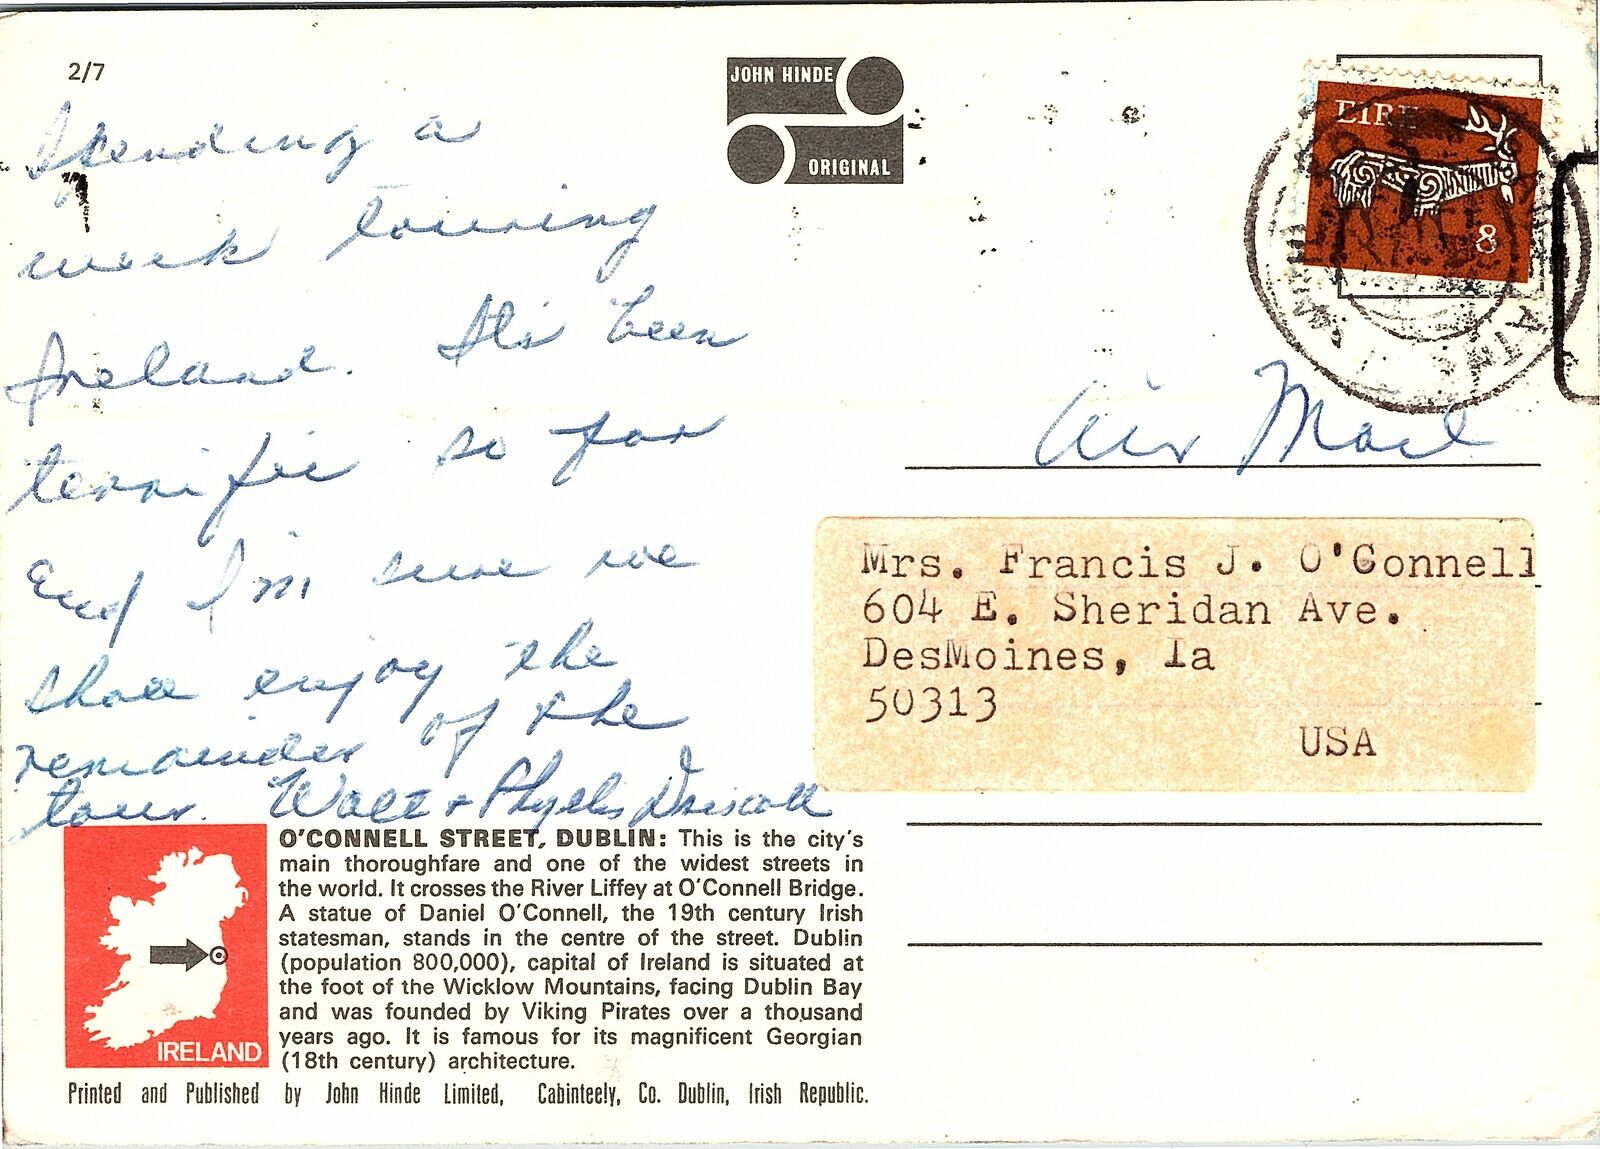 2/7
JOHN HINDE
ORIGINAL
EIRE
8
Spending a
week touring
Ireland. It's been
terrific so far
and I'm sure we
shall enjoy the
remainder of the
tour. Walt + Phyllis Driscoll
Air Mail
Mrs. Francis J. O'Connell
604 E. Sheridan Ave.
DesMoines, Ia
50313
USA
O'CONNELL STREET, DUBLIN: This is the city's
main thoroughfare and one of the widest streets in
the world. It crosses the River Liffey at O'Connell Bridge.
A statue of Daniel O'Connell, the 19th century Irish
statesman, stands in the centre of the street. Dublin
(population 800,000), capital of Ireland is situated at
the foot of the Wicklow Mountains, facing Dublin Bay
and was founded by Viking Pirates over a thousand
years ago. It is famous for its magnificent Georgian
(18th century) architecture.
IRELAND
Printed and Published by John Hinde Limited, Cabinteely, Co. Dublin, Irish Republic.